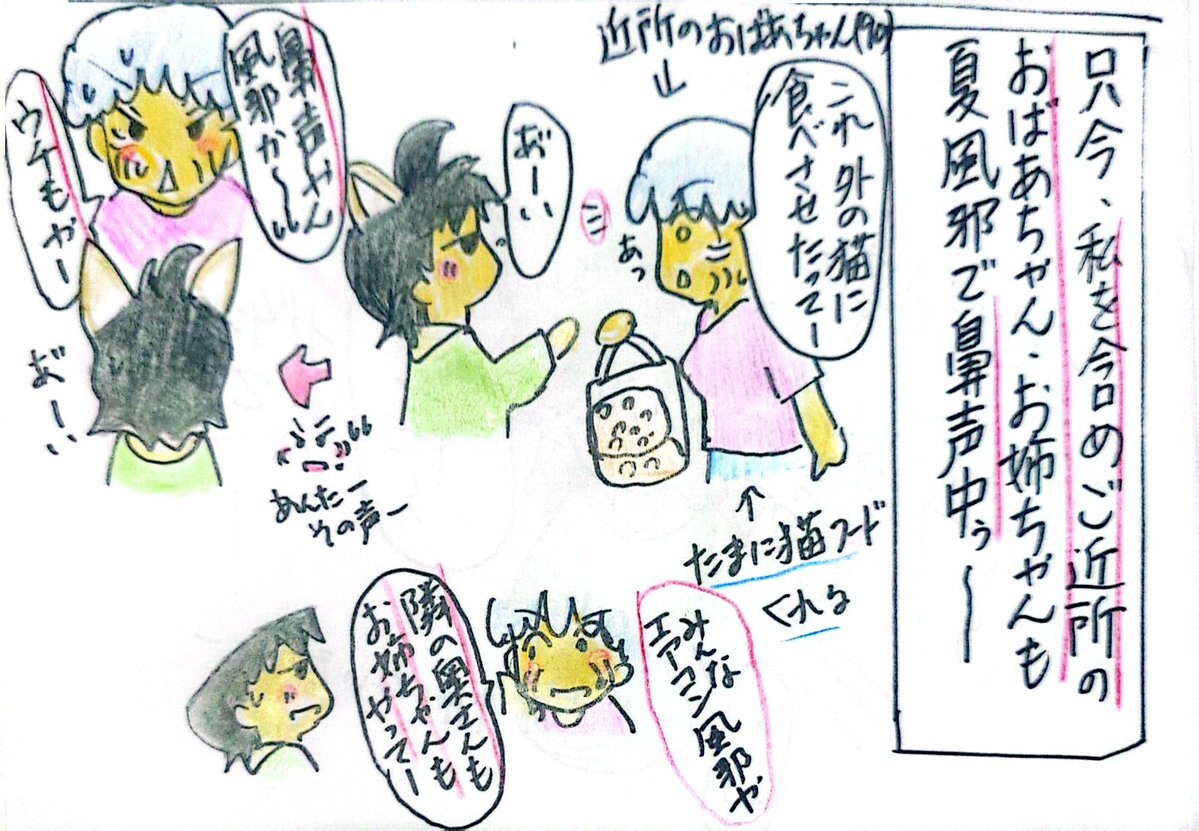 只今、私を含めご近所の
おばあちゃん・お姉ちゃんも
夏風邪で鼻声中ぅ〜
近所のおばあちゃん(90)
↓
これ外の猫に
食べさせたってー
あっ
お゛ーい
↑
たまに猫フード
くれる
あんたー
その声ー
鼻声やん
風邪か〜
ウチもやー
お゛ーい
みんな
エアコン風邪や
隣の奥さんも
お姉ちゃんも
やってー